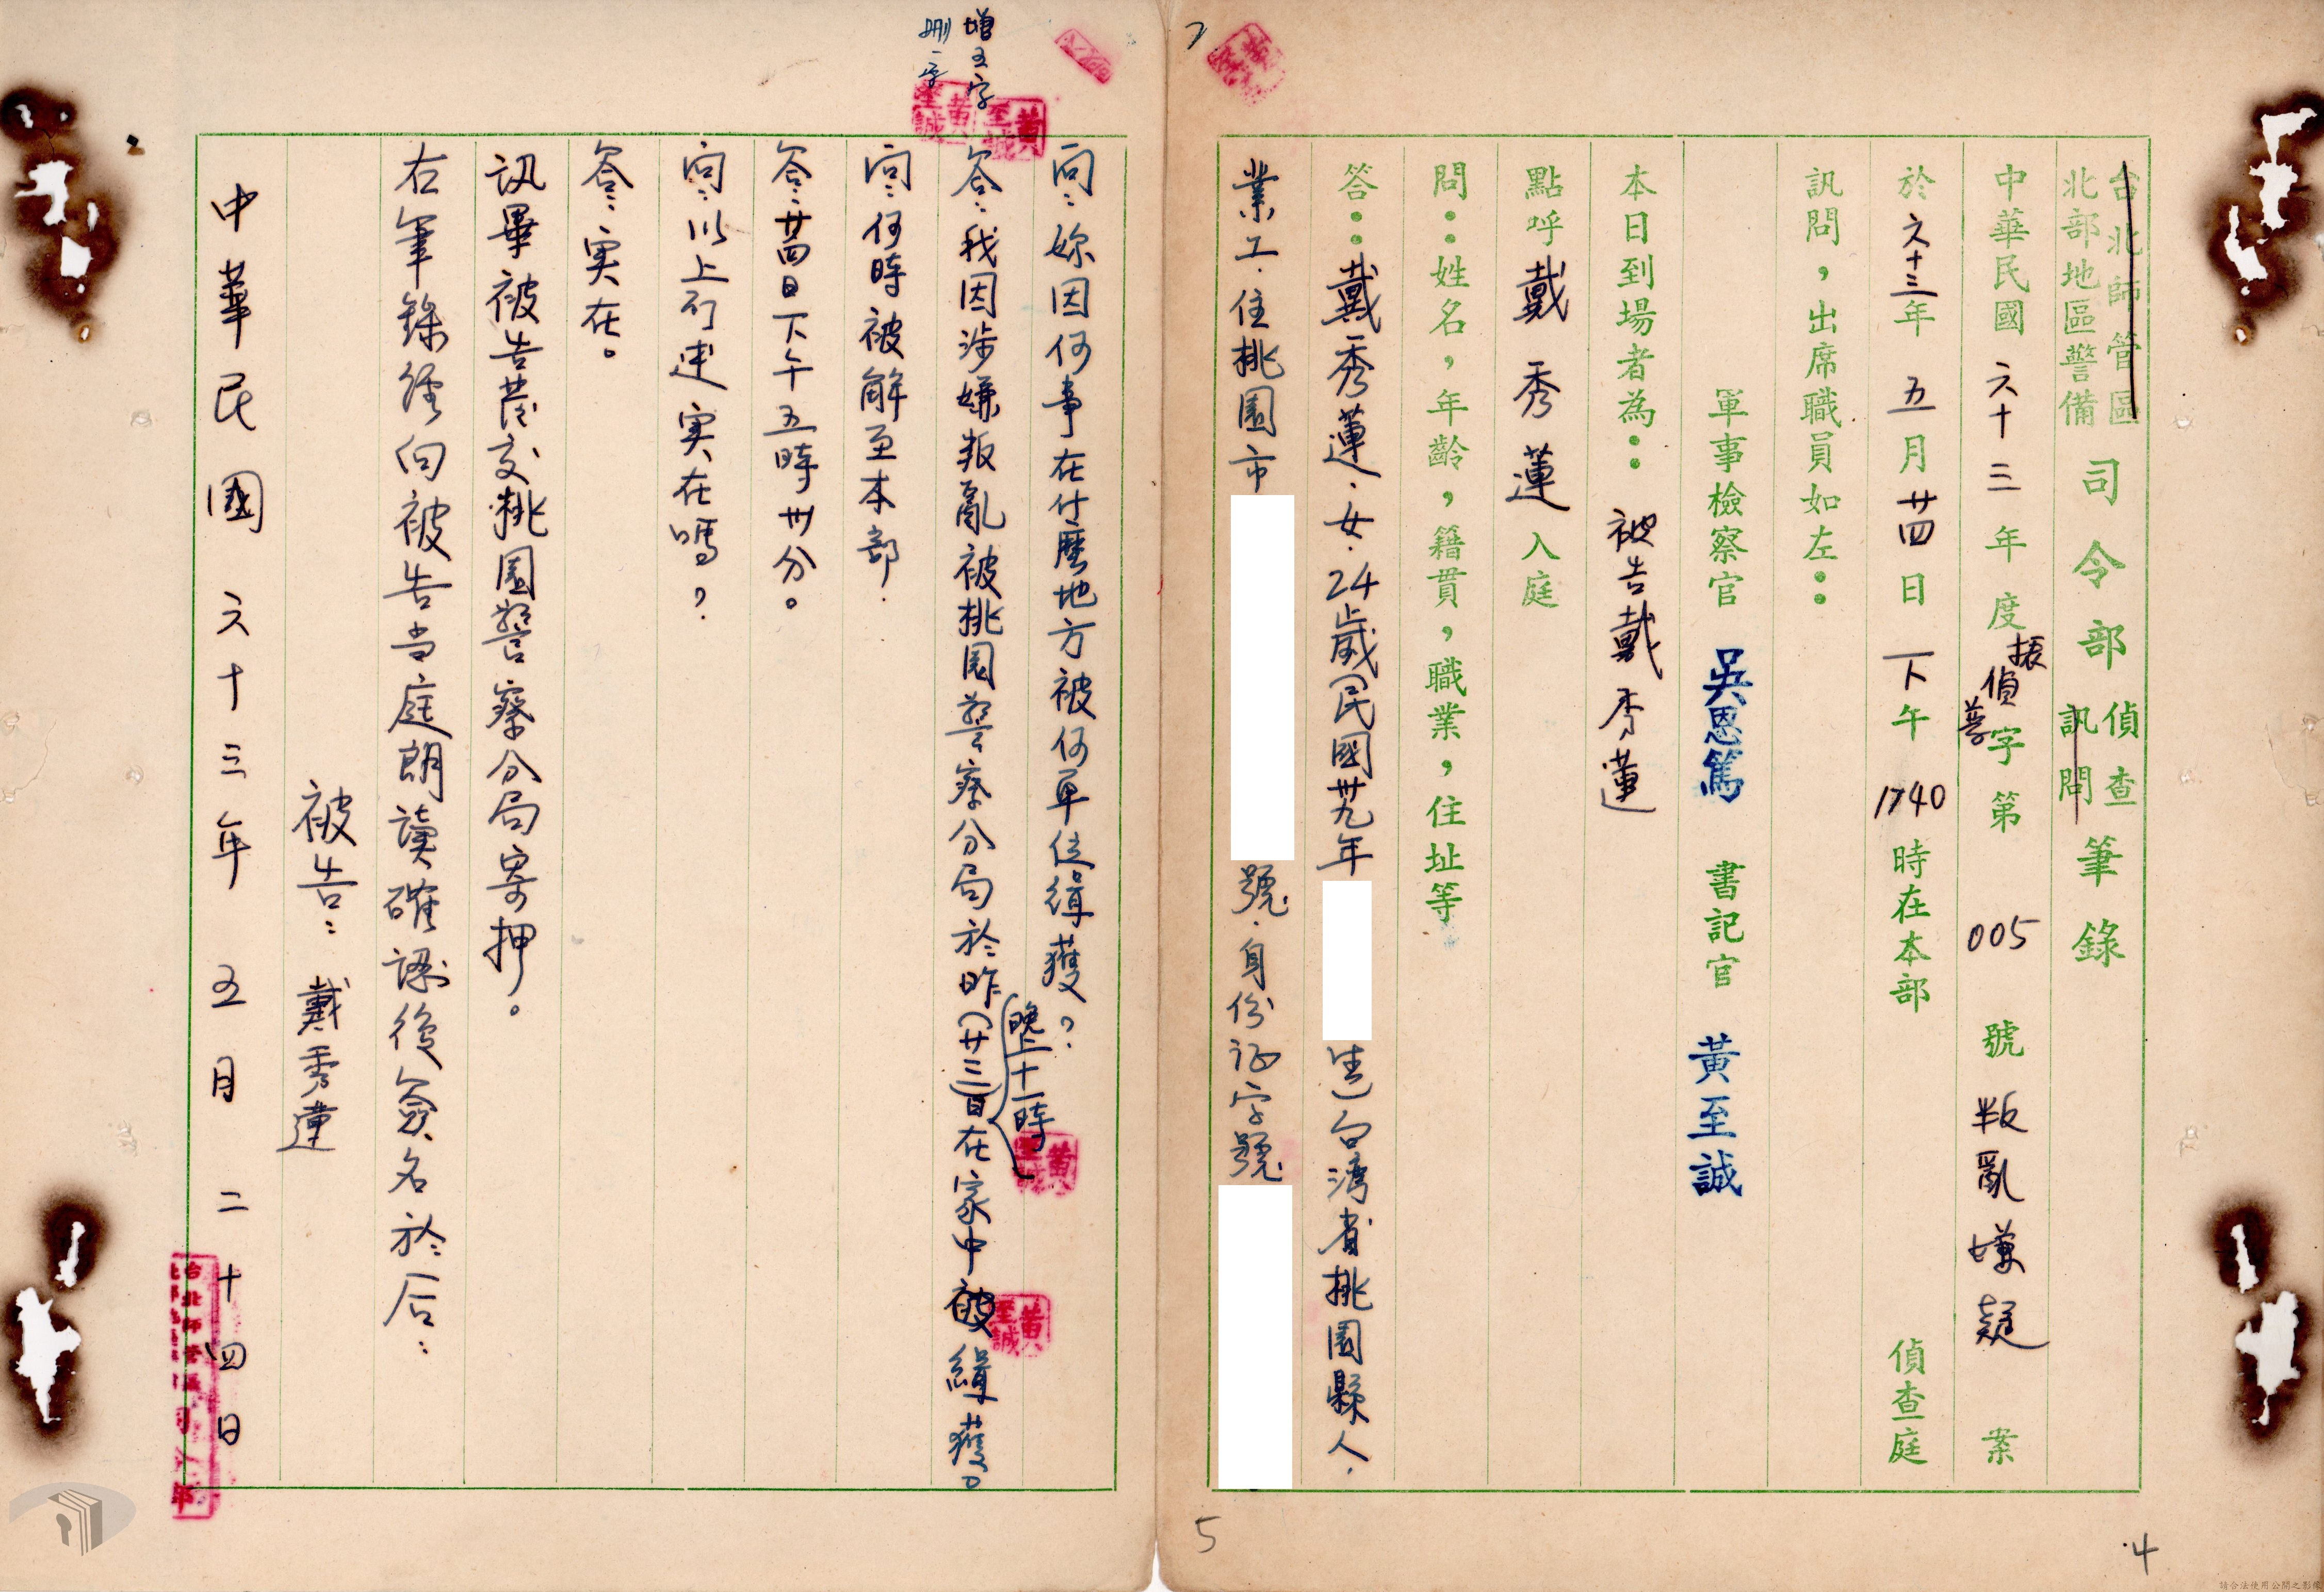 台北師管區
北部地區警備
司令部
偵查
訊問
筆錄
中華民國六十三年度振偵字第005號叛亂嫌疑案
於六十三年五月廿四日下午1740時在本部偵查庭
訊問，出席職員如左：
軍事檢察官 吳恩篤 書記官 黃至誠
本日到場者為：被告戴秀蓮
點呼戴秀蓮入庭
問：姓名，年齡，籍貫，職業，住址等
答：戴秀蓮．女．24歲（民國卅九年 生）台湾省桃園縣人．
業工．住桃園市 號．身份证字號
問：妳因何事在什麼地方被何單位緝獲？
答：我因涉嫌叛亂被桃園警察分局於昨（廿三）日晚上十一時在家中被緝獲。
問：何時被解至本部．
答：廿四日下午五時卅分。
問：以上所述实在嗎？
答：实在。
訊畢被告發交桃園警察分局寄押。
右筆錄經向被告当庭朗讀確認後簽名於后：
被告：戴秀蓮
中華民國六十三年五月二十四日
增五字
刪一字
黃至誠
黃至誠
黃至誠
黃至誠
7
5
4
請合法使用公開之影像